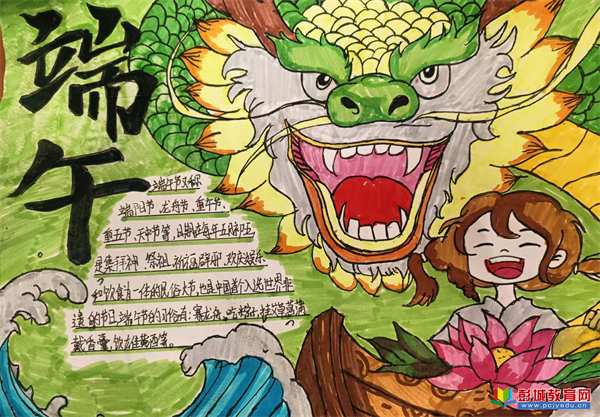 端午
端午节又称
端阳节、龙舟节、重午节、
重五节、天中节等、日期在每年五月初五
是集拜神祭祖、祈福辟邪、欢庆娱乐
和饮食为一体的民俗大节,也是中国首个入选世界非
遗的节日,端午节的习俗有:赛龙舟、吃粽子、挂艾草菖蒲
戴香囊、饮雄黄酒等。
彭城教育网
www.pcjyedu.cn